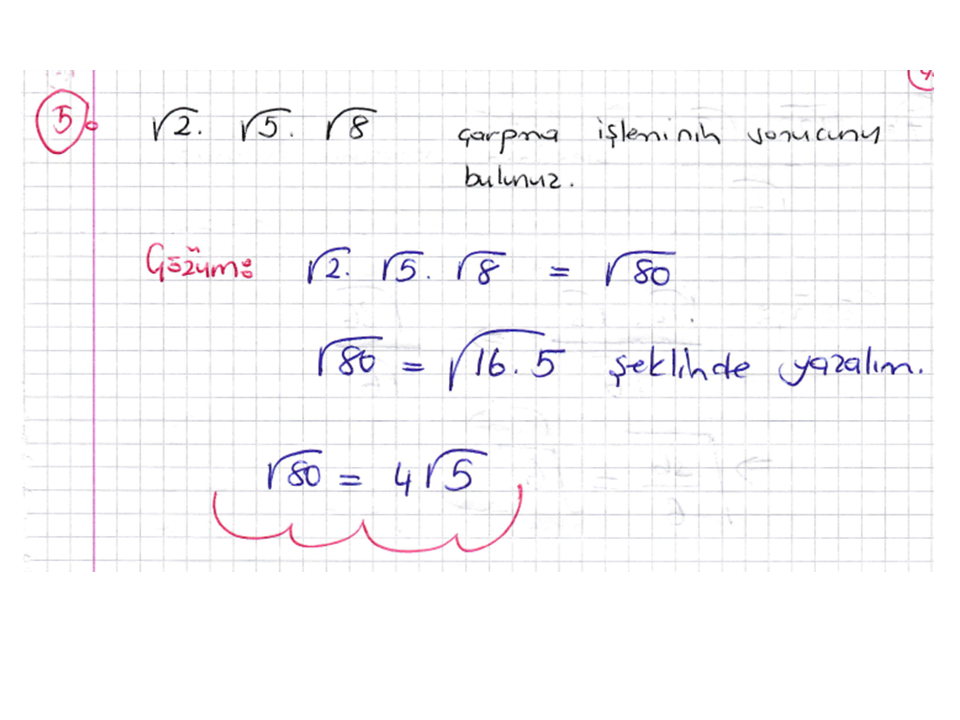 5. √2 . √5 . √8 çarpma işleminin sonucunu
bulunuz.
Çözüm: √2 . √5 . √8 = √80
√80 = √16.5 şeklinde yazalım.
√80 = 4√5